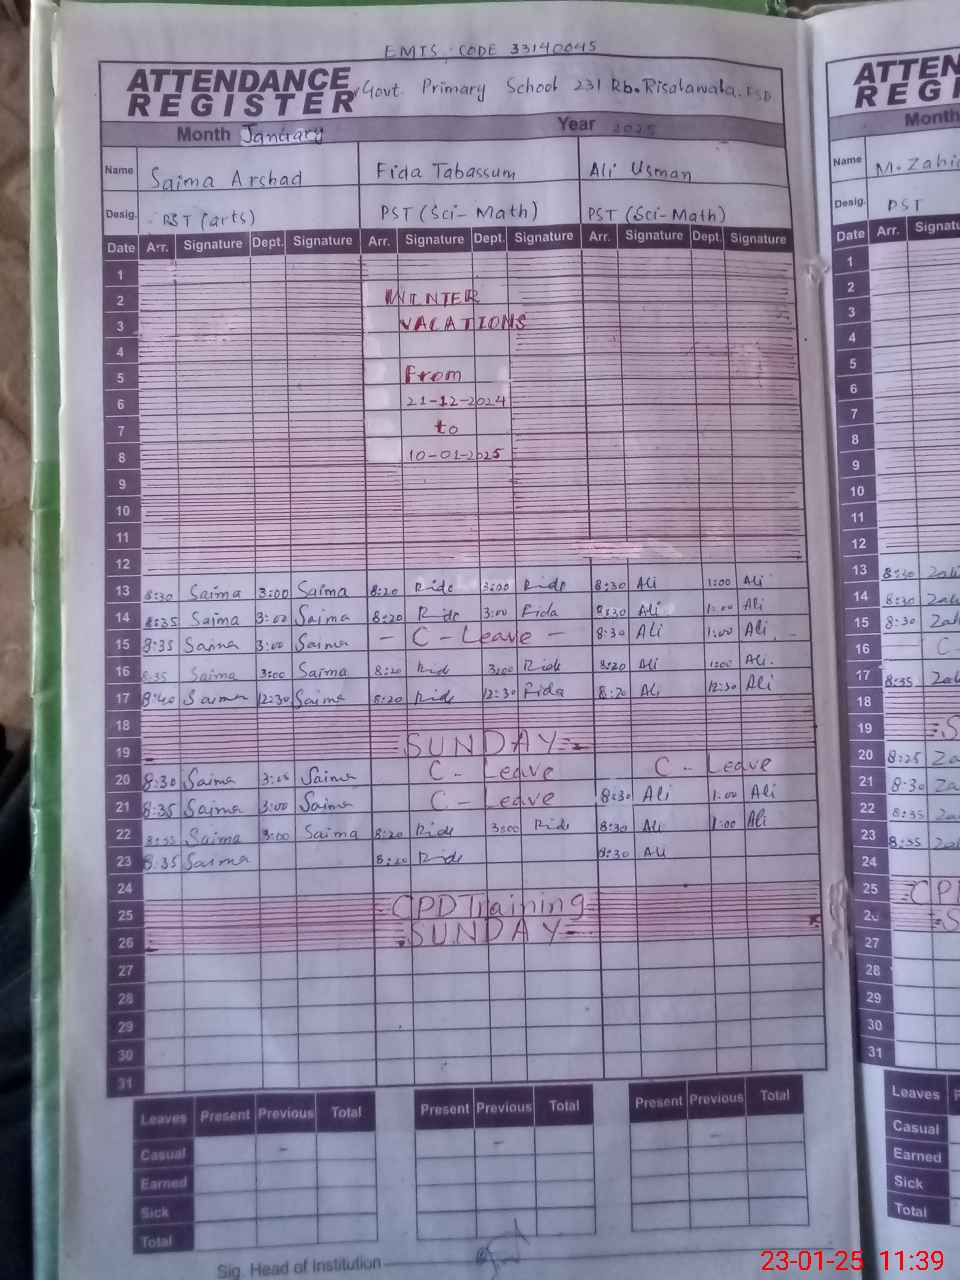 EMIS. CODE 33140045
ATTENDANCE REGISTER Govt. Primary School 231 Rb. Risalawala. FSD
Month January Year 2025
Name Saima Arshad Fida Tabassum Ali Usman
Desig. PST (arts) PST (Sci-Math) PST (Sci-Math)
Date Arr. Signature Dept. Signature Arr. Signature Dept. Signature Arr. Signature Dept. Signature
1
2 WINTER
3 VACATIONS
4
5 From
6 21-12-2024
7 to
8 10-01-2025
9
10
11
12
13 8:30 Saima 3:00 Saima 8:20 Fida 3:00 Fida 8:30 Ali 1:00 Ali
14 8:35 Saima 3:00 Saima 8:20 Fida 3:00 Fida 8:30 Ali 1:00 Ali
15 8:35 Saima 3:00 Saima - C - Leave - 8:30 Ali 1:00 Ali
16 8:35 Saima 3:00 Saima 8:20 Fida 3:00 Fida 8:20 Ali 1:00 Ali
17 8:40 Saima 12:30 Saima 8:20 Fida 12:30 Fida 8:20 Ali 12:30 Ali
18
19 =SUNDAY=
20 8:30 Saima 3:00 Saima C - Leave C - Leave
21 8:35 Saima 3:00 Saima C - Leave 8:30 Ali 1:00 Ali
22 8:35 Saima 3:00 Saima 8:20 Fida 3:00 Fida 8:30 Ali 1:00 Ali
23 8:35 Saima 8:20 Fida 8:30 Ali
24
25 =CPD Training=
26 =SUNDAY=
27
28
29
30
31
Leaves Present Previous Total Present Previous Total Present Previous Total
Casual - - -
Earned
Sick
Total
Sig. Head of Institution
ATTEN
REGI
Month
Name M. Zahi
Desig. PST
Date Arr. Signatu
1
2
3
4
5
6
7
8
9
10
11
12
13 8:30 Zah
14 8:30 Zah
15 8:30 Zah
16 C
17 8:35 Zah
18
19 =S
20 8:25 Za
21 8:30 Za
22 8:35 Za
23 8:35 Zah
24
25 =CPD
26 =S
27
28
29
30
31
Leaves P
Casual
Earned
Sick
Total
23-01-25 11:39